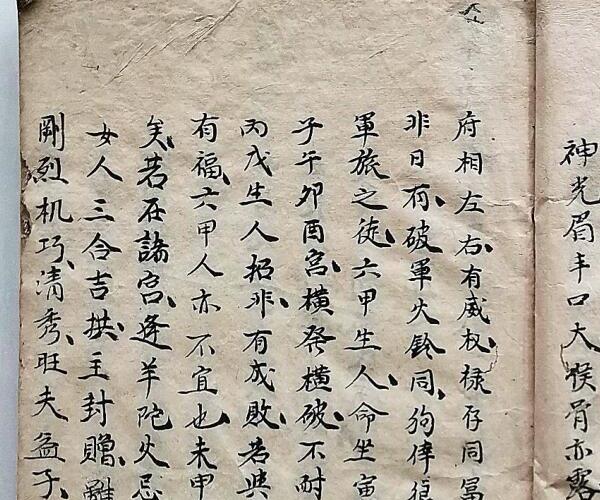 神光眉丰口大喉骨亦露
府相左右有威权禄存同富
非日有破軍火鈴同狥倖
軍旅之徒六甲生人命坐寅
子午卯酉宫横發横破不耐
丙戊生人招非有成敗若與
有福六甲人亦不宜也未申
矣若在諸宫逢羊陀火忌
女人三合吉拱主封贈雖
剛烈机巧清秀旺夫益子